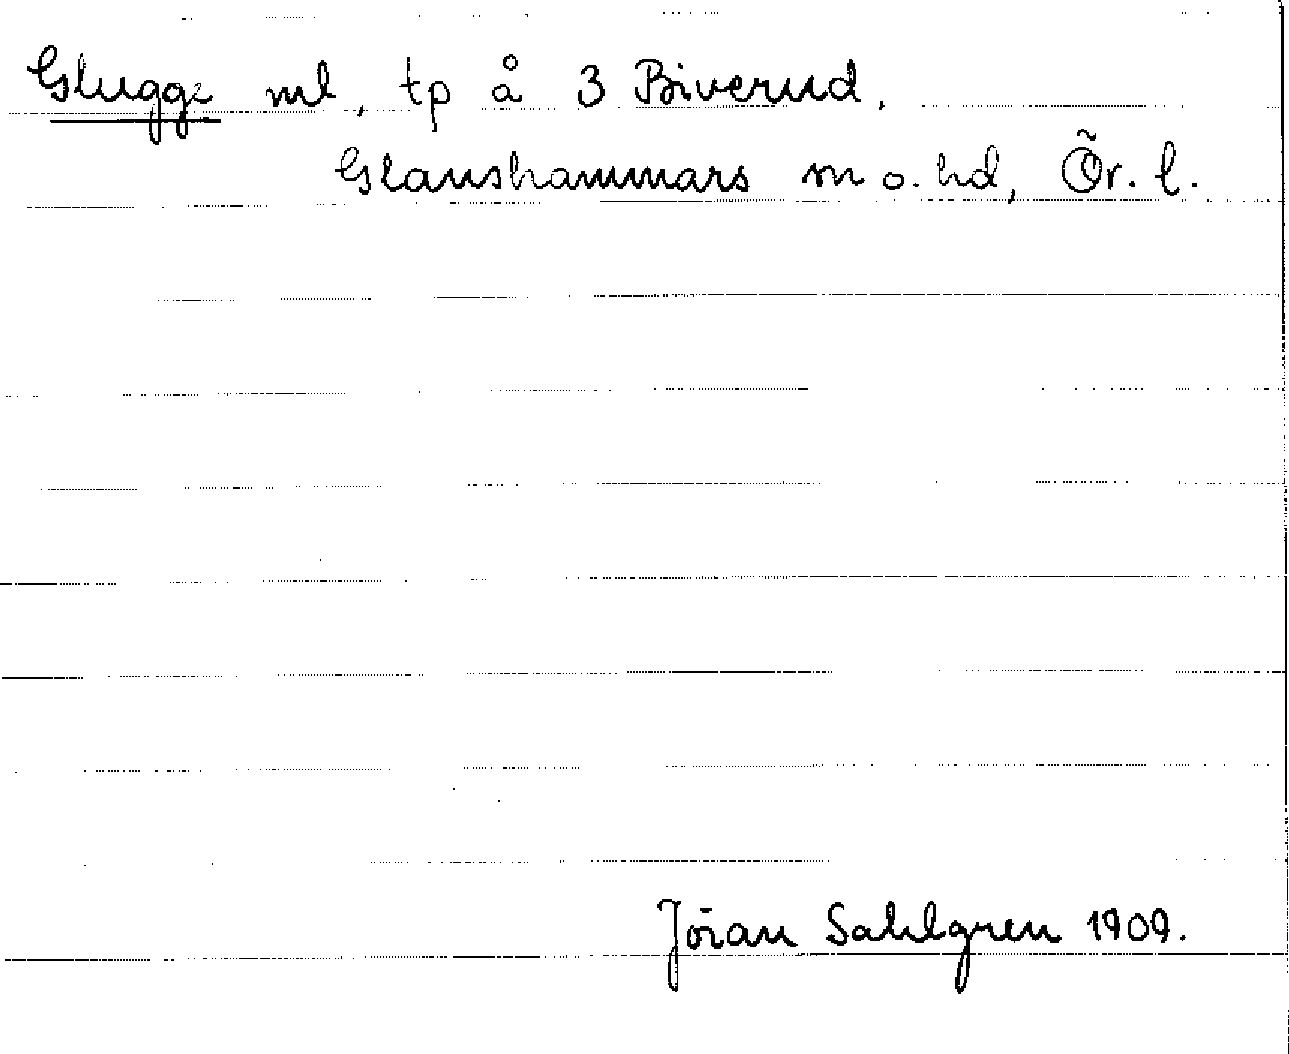 Glugge ml, tp å 3 Biverud.
Glanshammars sn o. hd, Ör. l.
Jöran Sahlgren 1909.